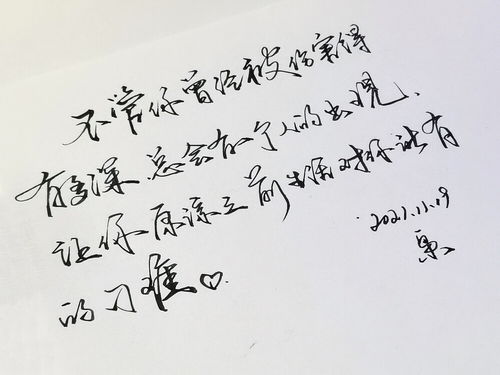 不管你曾经被伤害得
有多深,总会有个人的出现,
让你原谅之前生活对你所有
的刁难♡.
2021.11.19